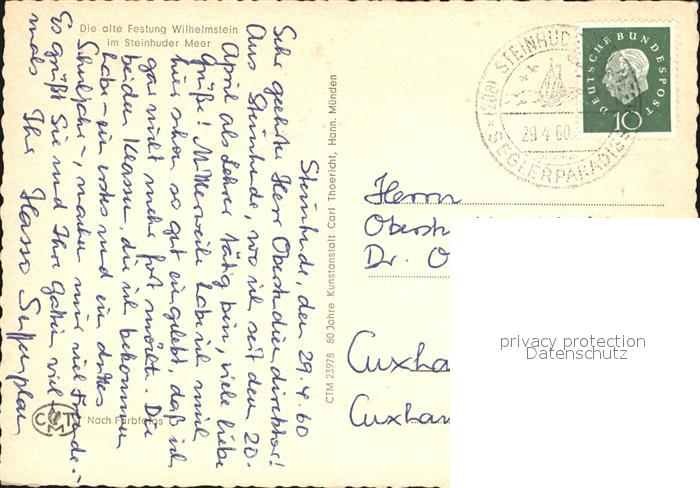 Die alte Festung Wilhelmstein
im Steinhuder Meer
Steinhude, den 29.4.60
Sehr geehrter Herr Oberstudiendirektor!
Aus Steinhude, wo ich seit dem 20.
April als Lehrer tätig bin, viele liebe
Grüße! Mittlerweile habe ich mich
hier schon so gut eingelebt, daß ich
gar nicht mehr fort möchte. Die
beiden Klassen, die ich bekommen
habe - ein erstes und ein drittes
Schuljahr -, machen mir viel Freude.-
Es grüßt Sie und Ihre Gattin viel-
mals Ihr
CTM 23978 80 Jahre Kunstanstalt Carl Thoericht, Hann. Münden
CTM
Nach Farbfotos
STEINHUD
29.4.60
SEGLERPARADIES
DEUTSCHE BUNDESPOST
10
Herrn
Oberst
Dr. O
Cuxha
Cuxhav
privacy protection
Datenschutz